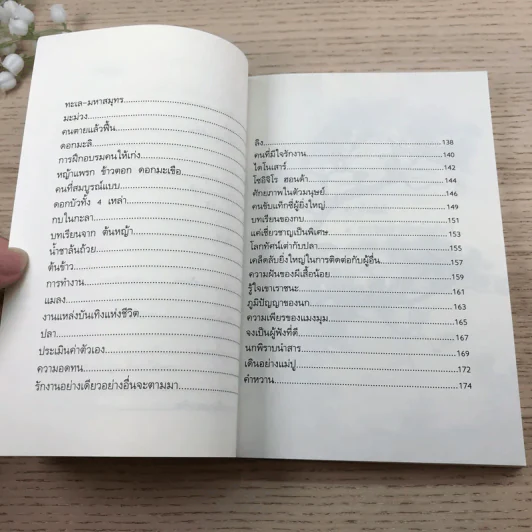 ทะเล-มหาสมุทร
มะม่วง
คนตายแล้วฟื้น
ดอกมะลิ
การฝึกอบรมคนให้เก่ง
หญ้าแพรก ข้าวตอก ดอกมะเขือ
คนที่สมบูรณ์แบบ
ดอกบัวทั้ง 4 เหล่า
กบในกะลา
บทเรียนจาก ต้นหญ้า
น้ำชาล้นถ้วย
ต้นข้าว
การทำงาน
แมลง
งานแหล่งบันเทิงแห่งชีวิต
ปลา
ประเมินค่าตัวเอง
ความอดทน
รักงานอย่างเดียวอย่างอื่นจะตามมา
ลิง 138
คนที่มีใจรักงาน 140
ไดโนเสาร์ 142
โซอิจิโร ฮอนด้า 144
ศักยภาพในตัวมนุษย์ 146
คนขับแท็กซี่ผู้ยิ่งใหญ่ 149
บทเรียนของกบ 151
แค่เชี่ยวชาญเป็นพิเศษ 153
โลกทัศน์เต่ากับปลา 155
เคล็ดลับยิ่งใหญ่ในการติดต่อกับผู้อื่น 157
ความฝันของผีเสื้อน้อย 159
รู้ใจเขาเราชนะ 161
ภูมิปัญญาของนก 163
ความเพียรของแมงมุม 165
จงเป็นผู้ฟังที่ดี 167
นกพิราบนำสาร 169
เดินอย่างแม่ปู 172
คำหวาน 174